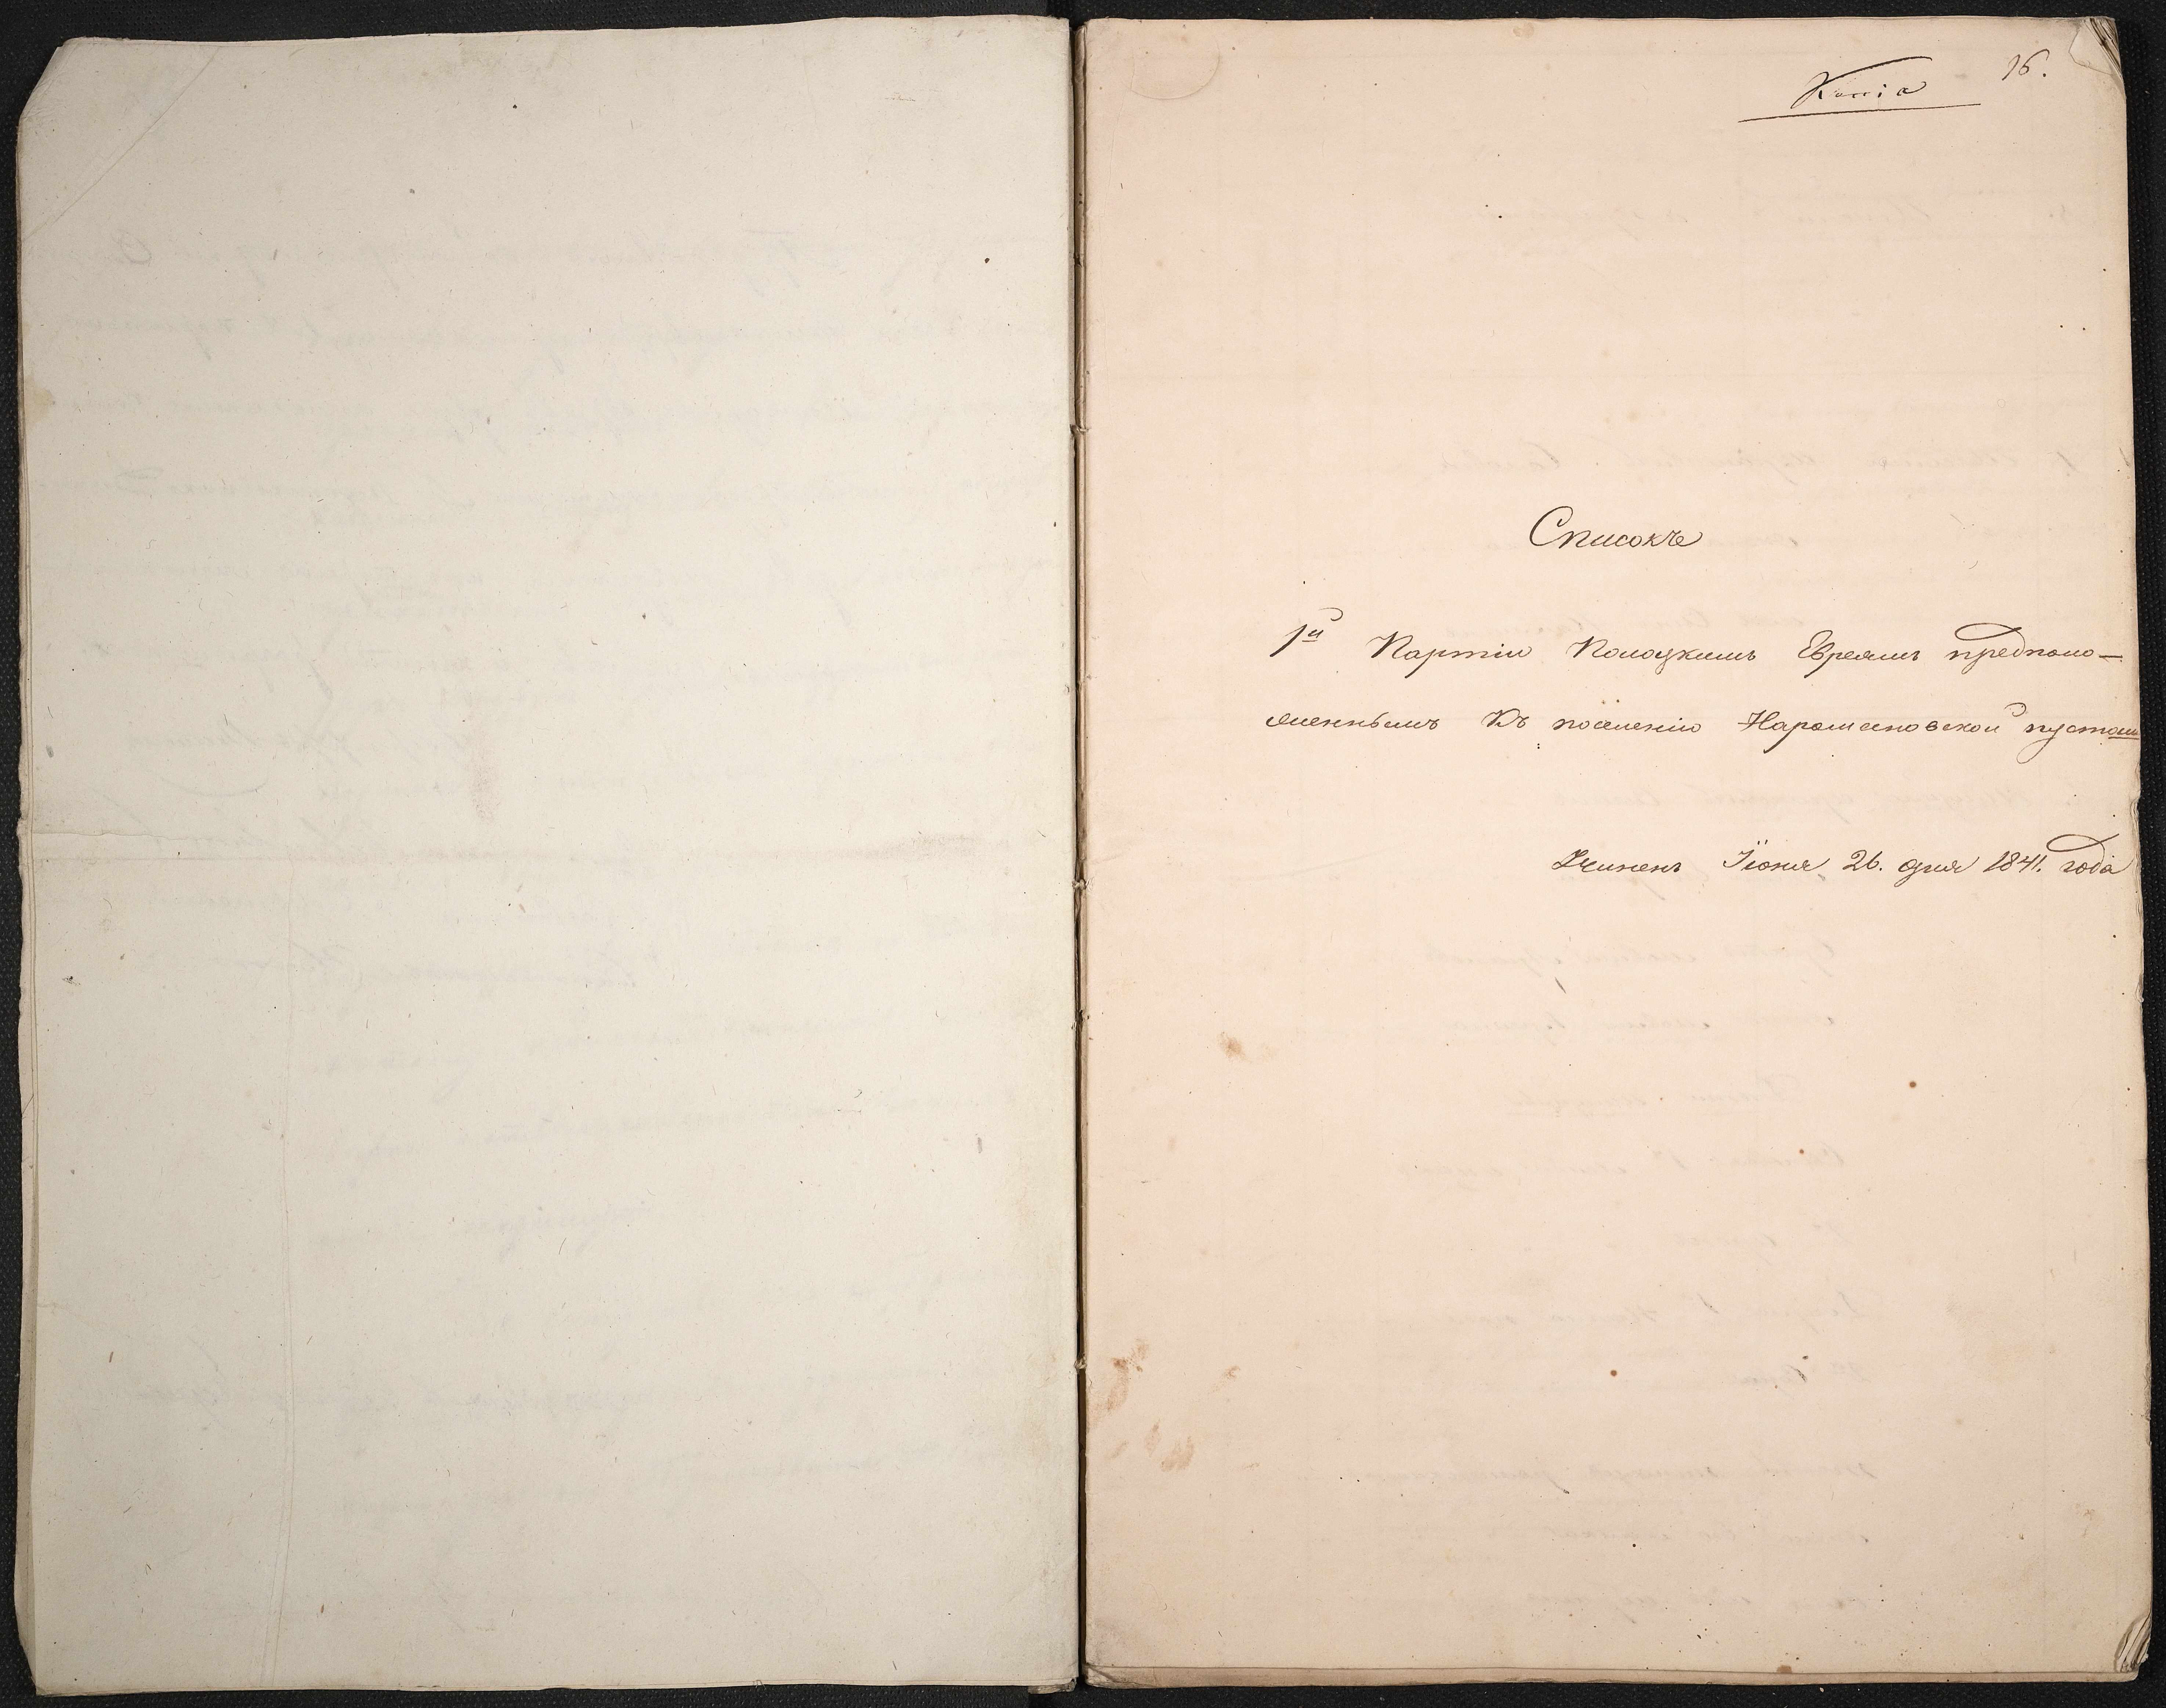 Копiя
16.
Списокъ
1й Партiи Полоцкимъ Евреямъ предполо-
женнымъ къ поселенiю Нарошановской пустоши
Учиненъ Iюня 26. дня 1841. года